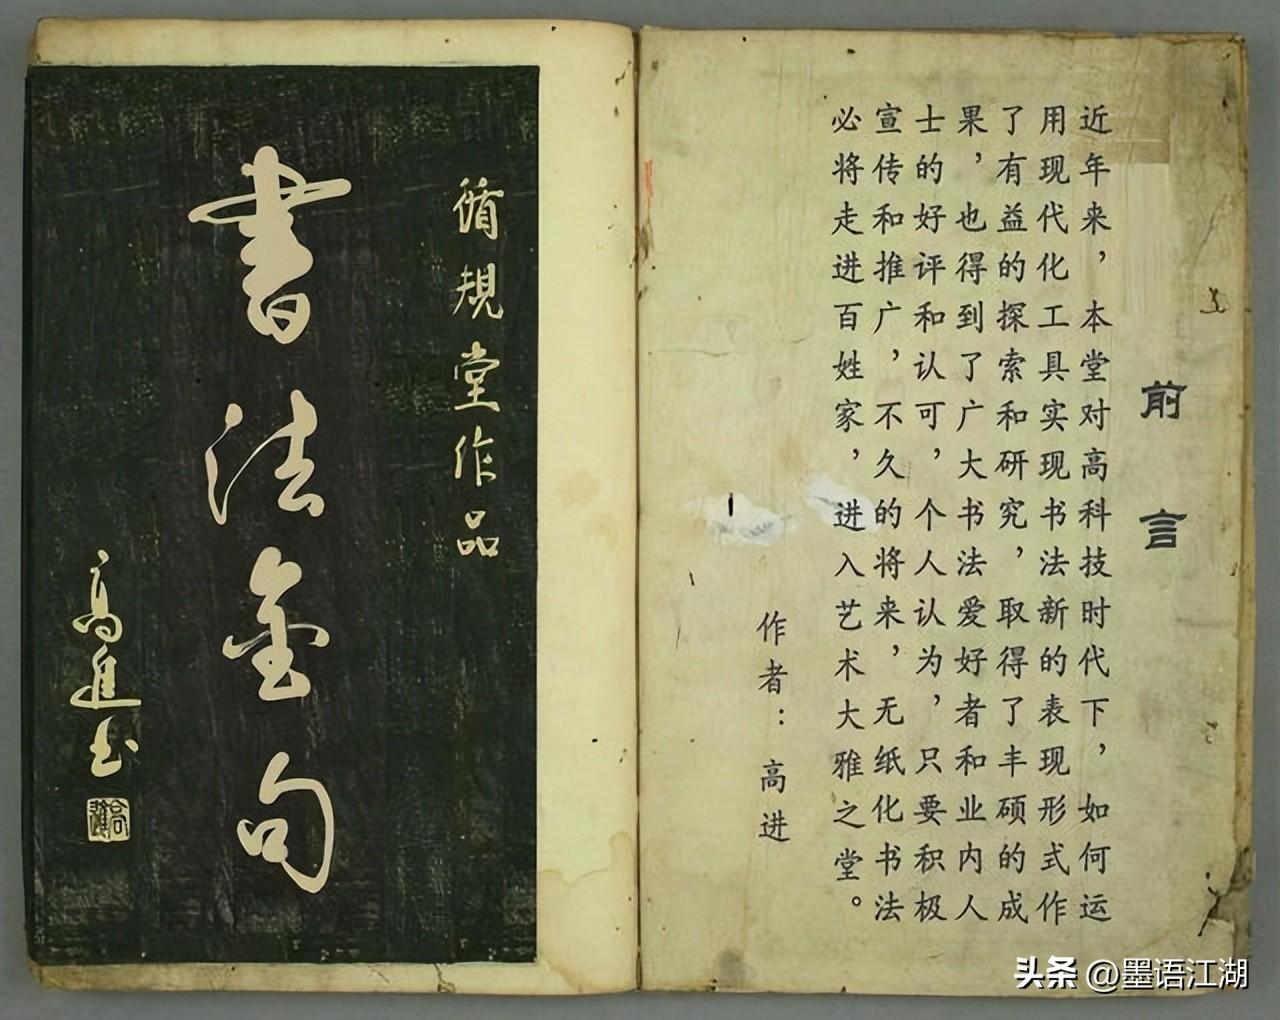 前言
近年来，本堂对高科技时代下，如何运
用现代化工具实现书法新的表现形式作
了有益的探索和研究，取得了丰硕的成
果，也得到了广大书法爱好者和业内人
士的好评和认可，个人认为，只要积极
宣传和推广，不久的将来，无纸化书法
必将走进百姓家，进入艺术大雅之堂。
作者：高进
循規堂作品
書法金句
高進书
头条 @墨语江湖